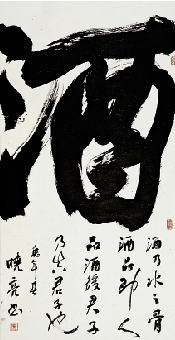 酒
酒乃水之骨
酒品即人
品酒君子
乃真君子也
年
晓亮书